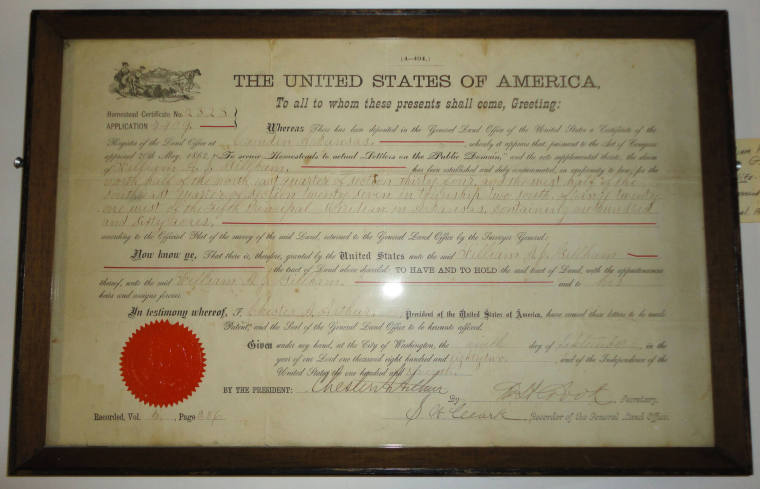 (4-404.)
THE UNITED STATES OF AMERICA,
To all to whom these presents shall come, Greeting:
Homestead Certificate No. 2323
APPLICATION
Whereas There has been deposited in the General Land Office of the United States a Certificate of the
Register of the Land Office at Camden Arkansas, whereby it appears that, pursuant to the Act of Congress
approved 20th May, 1862, "To secure Homesteads to actual Settlers on the Public Domain," and the acts supplemental thereto, the claim
of William has been established and duly consummated, in conformity to law, for the
north half of the north east quarter of section thirty four, and the west half of the
south east quarter of section twenty seven in township two south, of range twenty
one west of the Fifth Principal Meridian in Arkansas, containing one hundred
and sixty acres,
according to the Official Plat of the survey of the said Land, returned to the General Land Office by the Surveyor General:
Now know ye, That there is, therefore, granted by the United States unto the said William
the tract of Land above described: TO HAVE AND TO HOLD the said tract of Land, with the appurtenances
thereof, unto the said William and to his
heirs and assigns forever.
In testimony whereof, I, Chester A Arthur, President of the United States of America, have caused these letters to be made
Patent, and the Seal of the General Land Office to be hereunto affixed.
Given under my hand, at the City of Washington, the ninth day of September, in the
year of our Lord one thousand eight hundred and eighty two, and of the Independence of the
United States the one hundred and seventh.
BY THE PRESIDENT: Chester A Arthur
By Secretary.
S W Clark, Recorder of the General Land Office.
Recorded, Vol. 6, Page 386